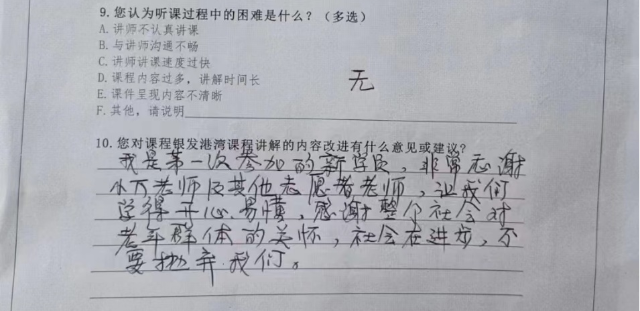 9. 您认为听课过程中的困难是什么？（多选）
A. 讲师不认真讲课
B. 与讲师沟通不畅
C. 讲师讲课速度过快
D. 课程内容过多，讲解时间长
E. 课件呈现内容不清晰
F. 其他，请说明
无
10. 您对课程银发港湾课程讲解的内容改进有什么意见或建议？
我是第一次参加的新学员，非常感谢
小万老师及其他志愿者老师，让我们
学得开心易懂，感谢整个社会对
老年群体的关怀，社会在进步，不
要抛弃我们。